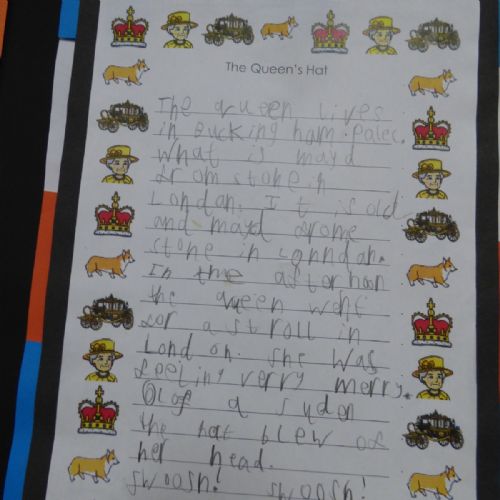 The Queen's Hat
The queen lives
in Bucking ham Palec.
What is mayd
from stone in
London. It is old
and mayd frome
stone in Lonndan.
In the afternoon
the queen went
for a stroll in
London. she was
feeling verry merry.
Ol of a suden
the hat blew of
her head.
swoosh! swoosh!